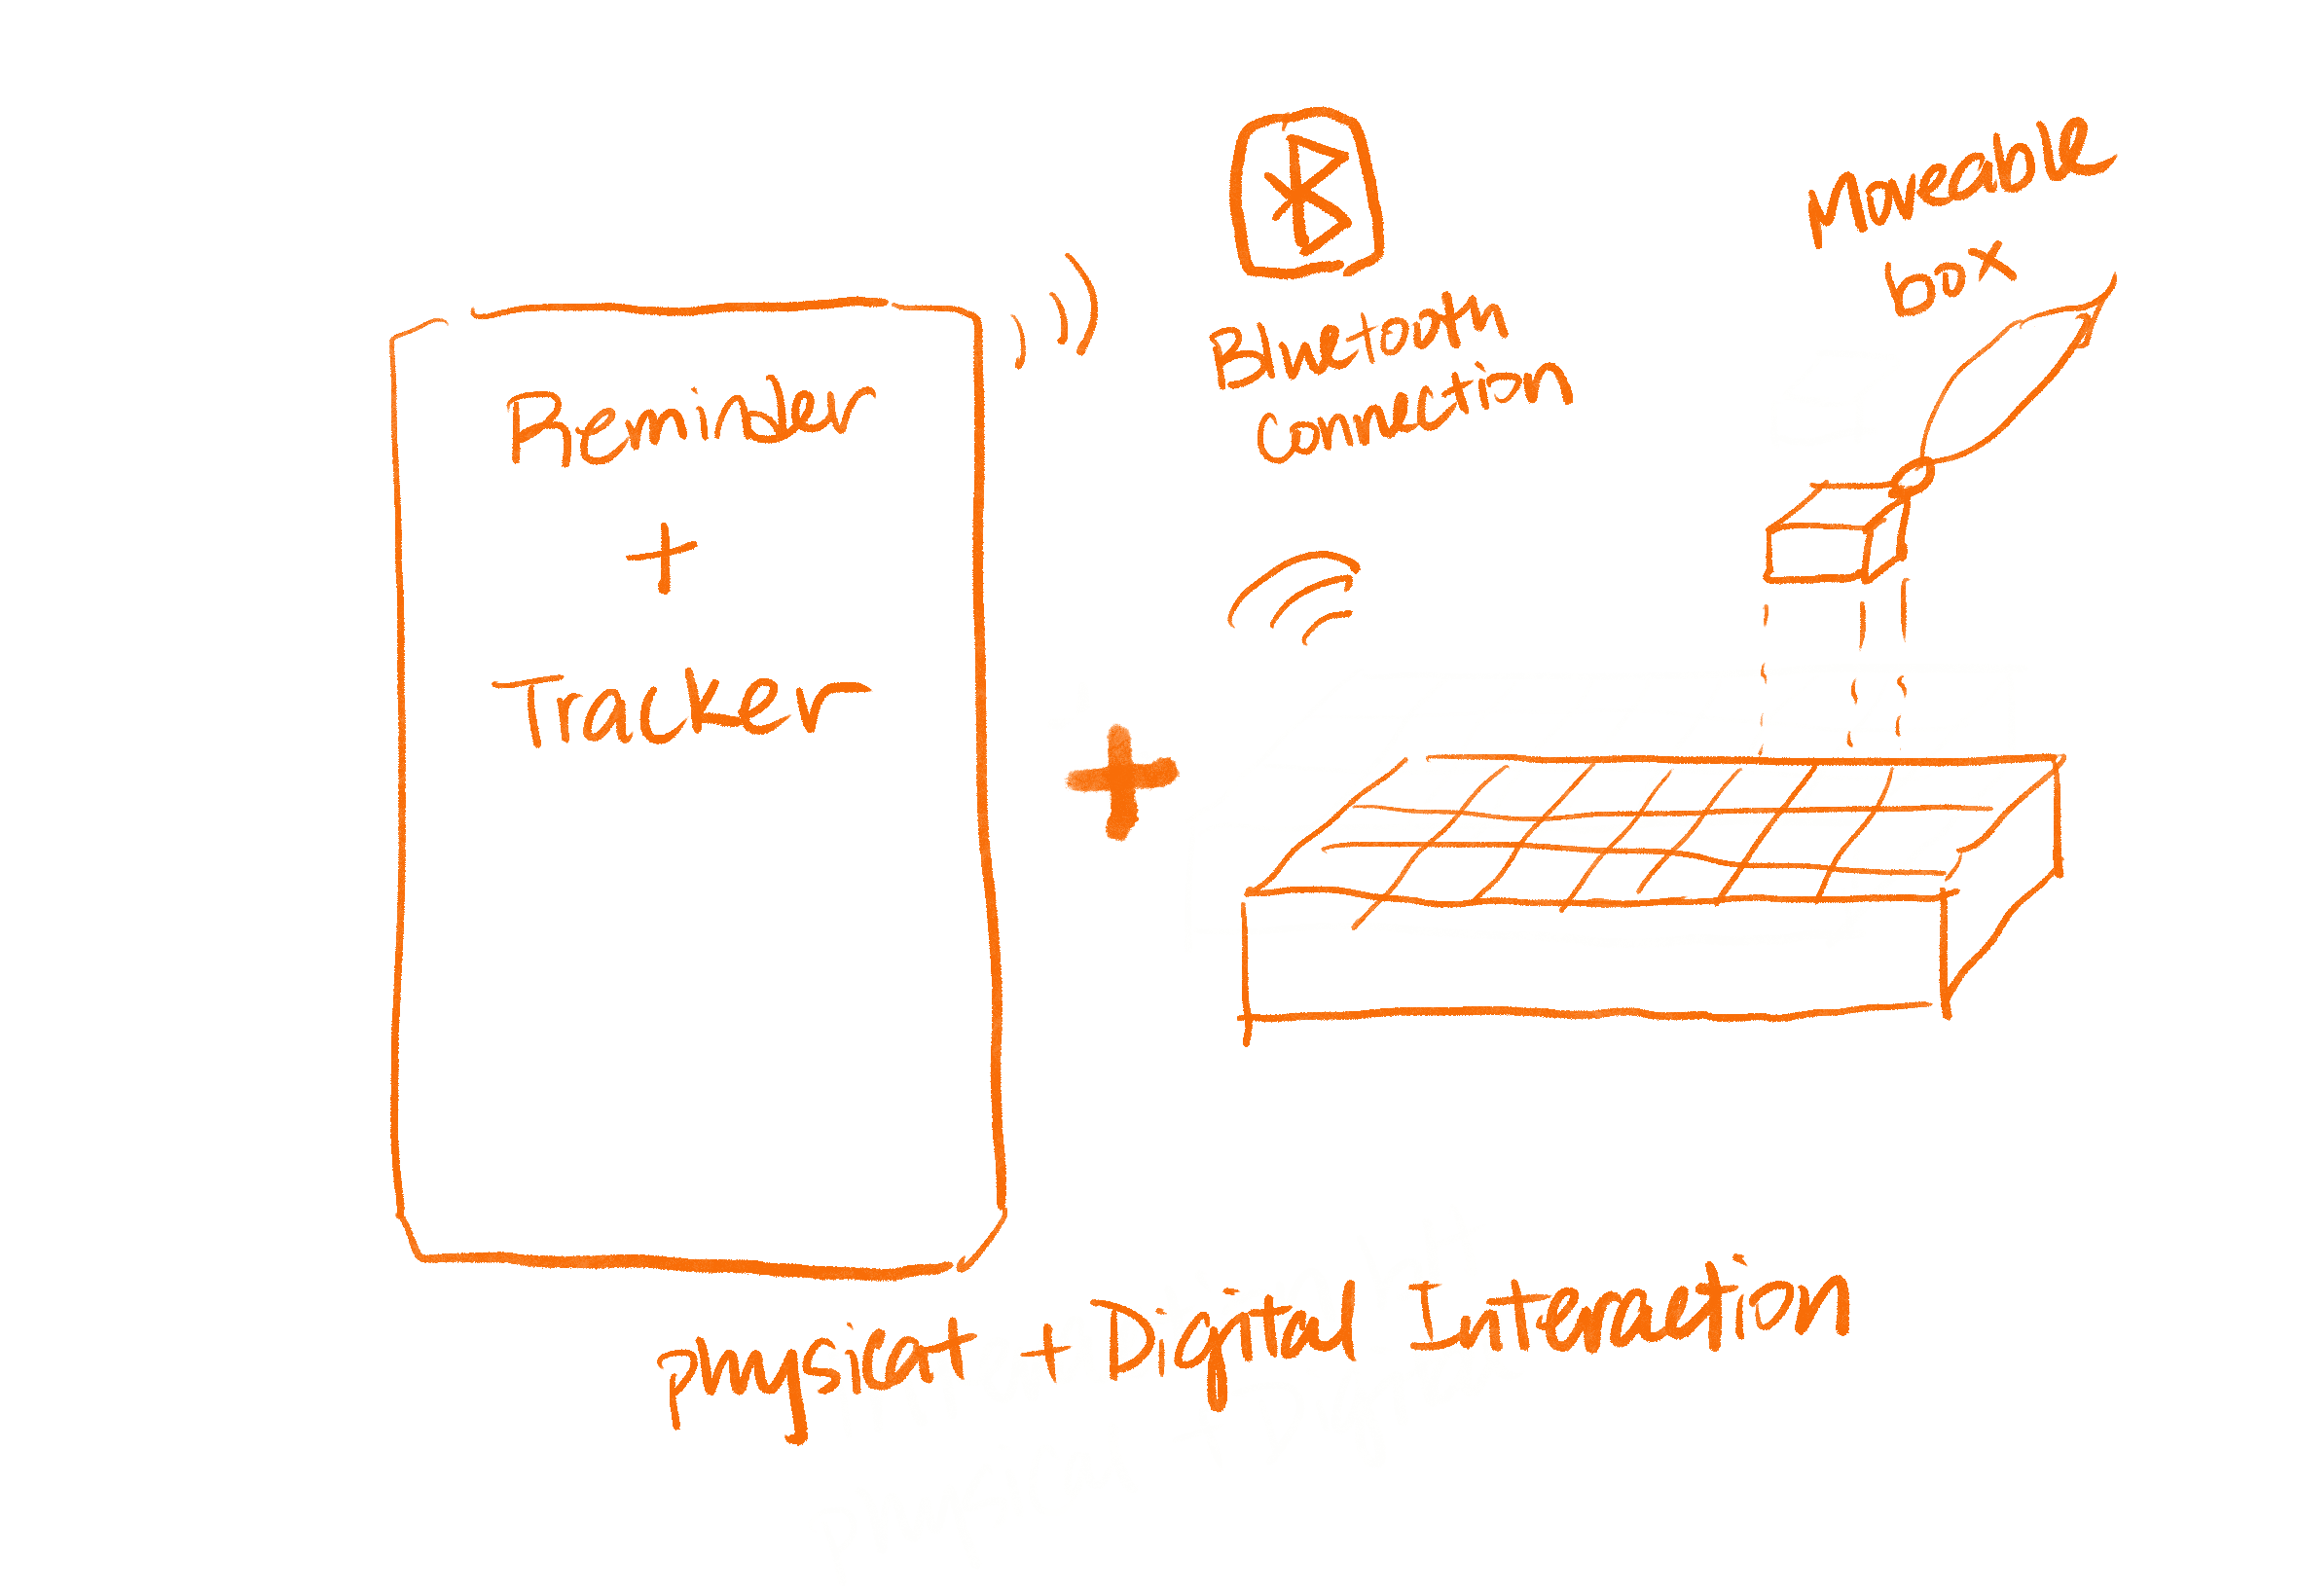 Reminder
+
Tracker
Bluetooth
Connection
Moveable
box
+
physical + Digital Interaction